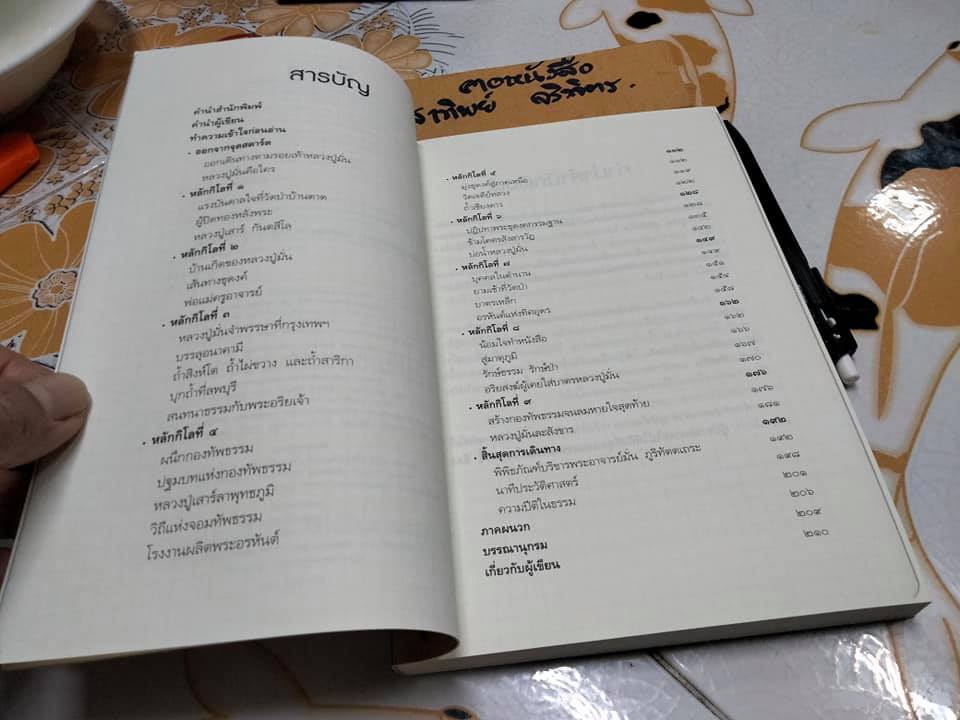 สารบัญ
คำนำสำนักพิมพ์
คำนำผู้เขียน
ทำความเข้าใจก่อนอ่าน
• ออกจากจุดสตาร์ต
ออกเดินทางตามรอยเท้าหลวงปู่มั่น
หลวงปู่มั่นคือใคร
• หลักกิโลที่ ๑
แรงบันดาลใจที่วัดป่าบ้านตาด
ผู้ปิดทองหลังพระ
หลวงปู่เสาร์ กันตสีโล
• หลักกิโลที่ ๒
บ้านเกิดของหลวงปู่มั่น
เส้นทางธุดงค์
พ่อแม่ครูอาจารย์
• หลักกิโลที่ ๓
หลวงปู่มั่นจำพรรษาที่กรุงเทพฯ
บรรลุอนาคามี
ถ้ำสิงห์โต ถ้ำไผ่ขวาง และถ้ำสาริกา
บุกถ้ำที่ลพบุรี
สนทนาธรรมกับพระอริยเจ้า
• หลักกิโลที่ ๔
ผนึกกองทัพธรรม
ปฐมบทแห่งกองทัพธรรม
หลวงปู่เสาร์ลาพุทธภูมิ
วิถีแห่งจอมทัพธรรม
โรงงานผลิตพระอรหันต์
ทิพย์
• หลักกิโลที่ ๕ ๑๑๒
มุ่งธุดงค์สู่ภาคเหนือ ๑๑๒
วัดเจดีย์หลวง ๑๑๙
ถ้ำเชียงดาว ๑๒๒
• หลักกิโลที่ ๖ ๑๒๘
ปฏิปทาพระธุดงคกรรมฐาน ๑๒๘
ข้ามโคตรสังสารวัฏ ๑๓๕
บ่อน้ำหลวงปู่มั่น ๑๔๒
• หลักกิโลที่ ๗ ๑๔๙
บุคคลในตำนาน ๑๔๙
ยามเช้าที่วัดป่า ๑๕๑
บาตรเหล็ก ๑๕๔
อรหันต์แห่งทิศอุดร ๑๕๘
• หลักกิโลที่ ๘ ๑๖๒
น้อมใจทำหนังสือ ๑๖๒
สู่มาตุภูมิ ๑๖๖
รักษ์ธรรม รักษ์ป่า ๑๖๗
อริยสงฆ์ผู้เคยใส่บาตรหลวงปู่มั่น ๑๗๐
• หลักกิโลที่ ๙ ๑๗๖
สร้างกองทัพธรรมจนลมหายใจสุดท้าย ๑๗๖
หลวงปู่มั่นละสังขาร ๑๘๑
• สิ้นสุดการเดินทาง ๑๙๒
พิพิธภัณฑ์บริขารพระอาจารย์มั่น ภูริทัตตเถระ ๑๙๒
นาทีประวัติศาสตร์ ๑๙๘
ความปีติในธรรม ๒๐๑
ภาคผนวก ๒๐๖
บรรณานุกรม ๒๐๙
เกี่ยวกับผู้เขียน ๒๑๐